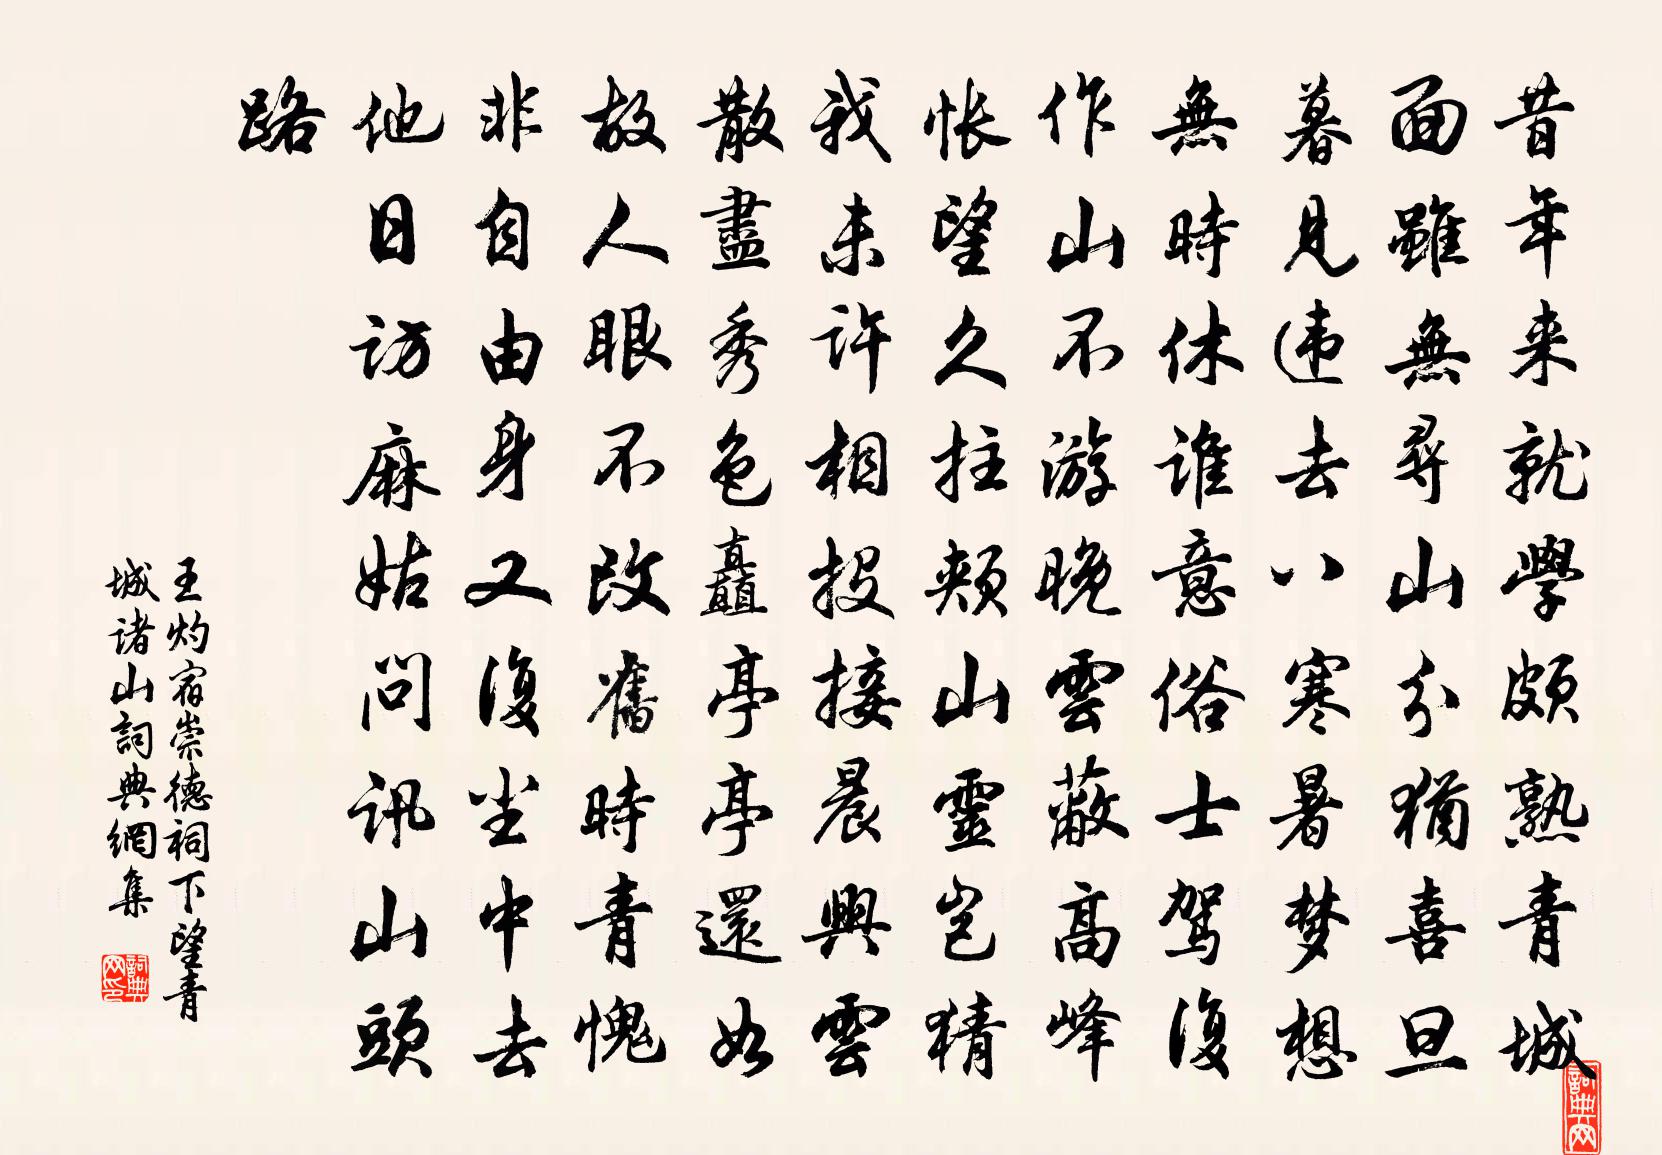 昔年来就學頗熟青城
面雖無尋山分猶喜旦
暮見违去八寒暑梦想
無時休谁意俗士驾復
作山不游晚雲蔽高峰
怅望久拄颊山靈岂猜
我未许相投接晨興雲
散盡秀色矗亭亭還如
故人眼不改舊時青愧
非自由身又復尘中去
他日访麻姑问讯山頭
路
王灼宿崇德祠下望青
城诸山詞典網集
詞典网
詞典网印